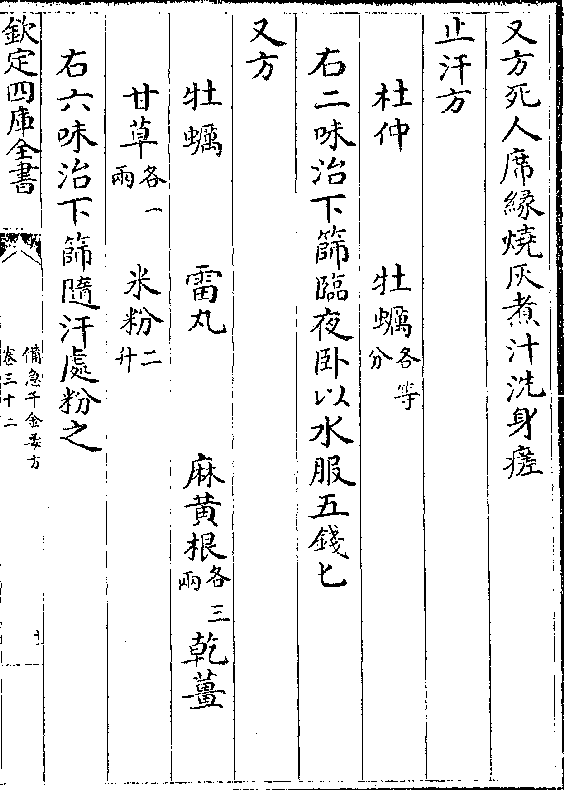 又方死人席緣燒灰煮汁洗身瘥
止汗方
杜仲　牡蠣各等分
右二味治下篩臨夜卧以水服五錢匕
又方
牡蠣　雷丸　麻黄根各三兩　乾薑
甘草各一兩　米粉二升
右六味治下篩隨汗處粉之
欽定四庫全書
備急千金要方
卷三十二